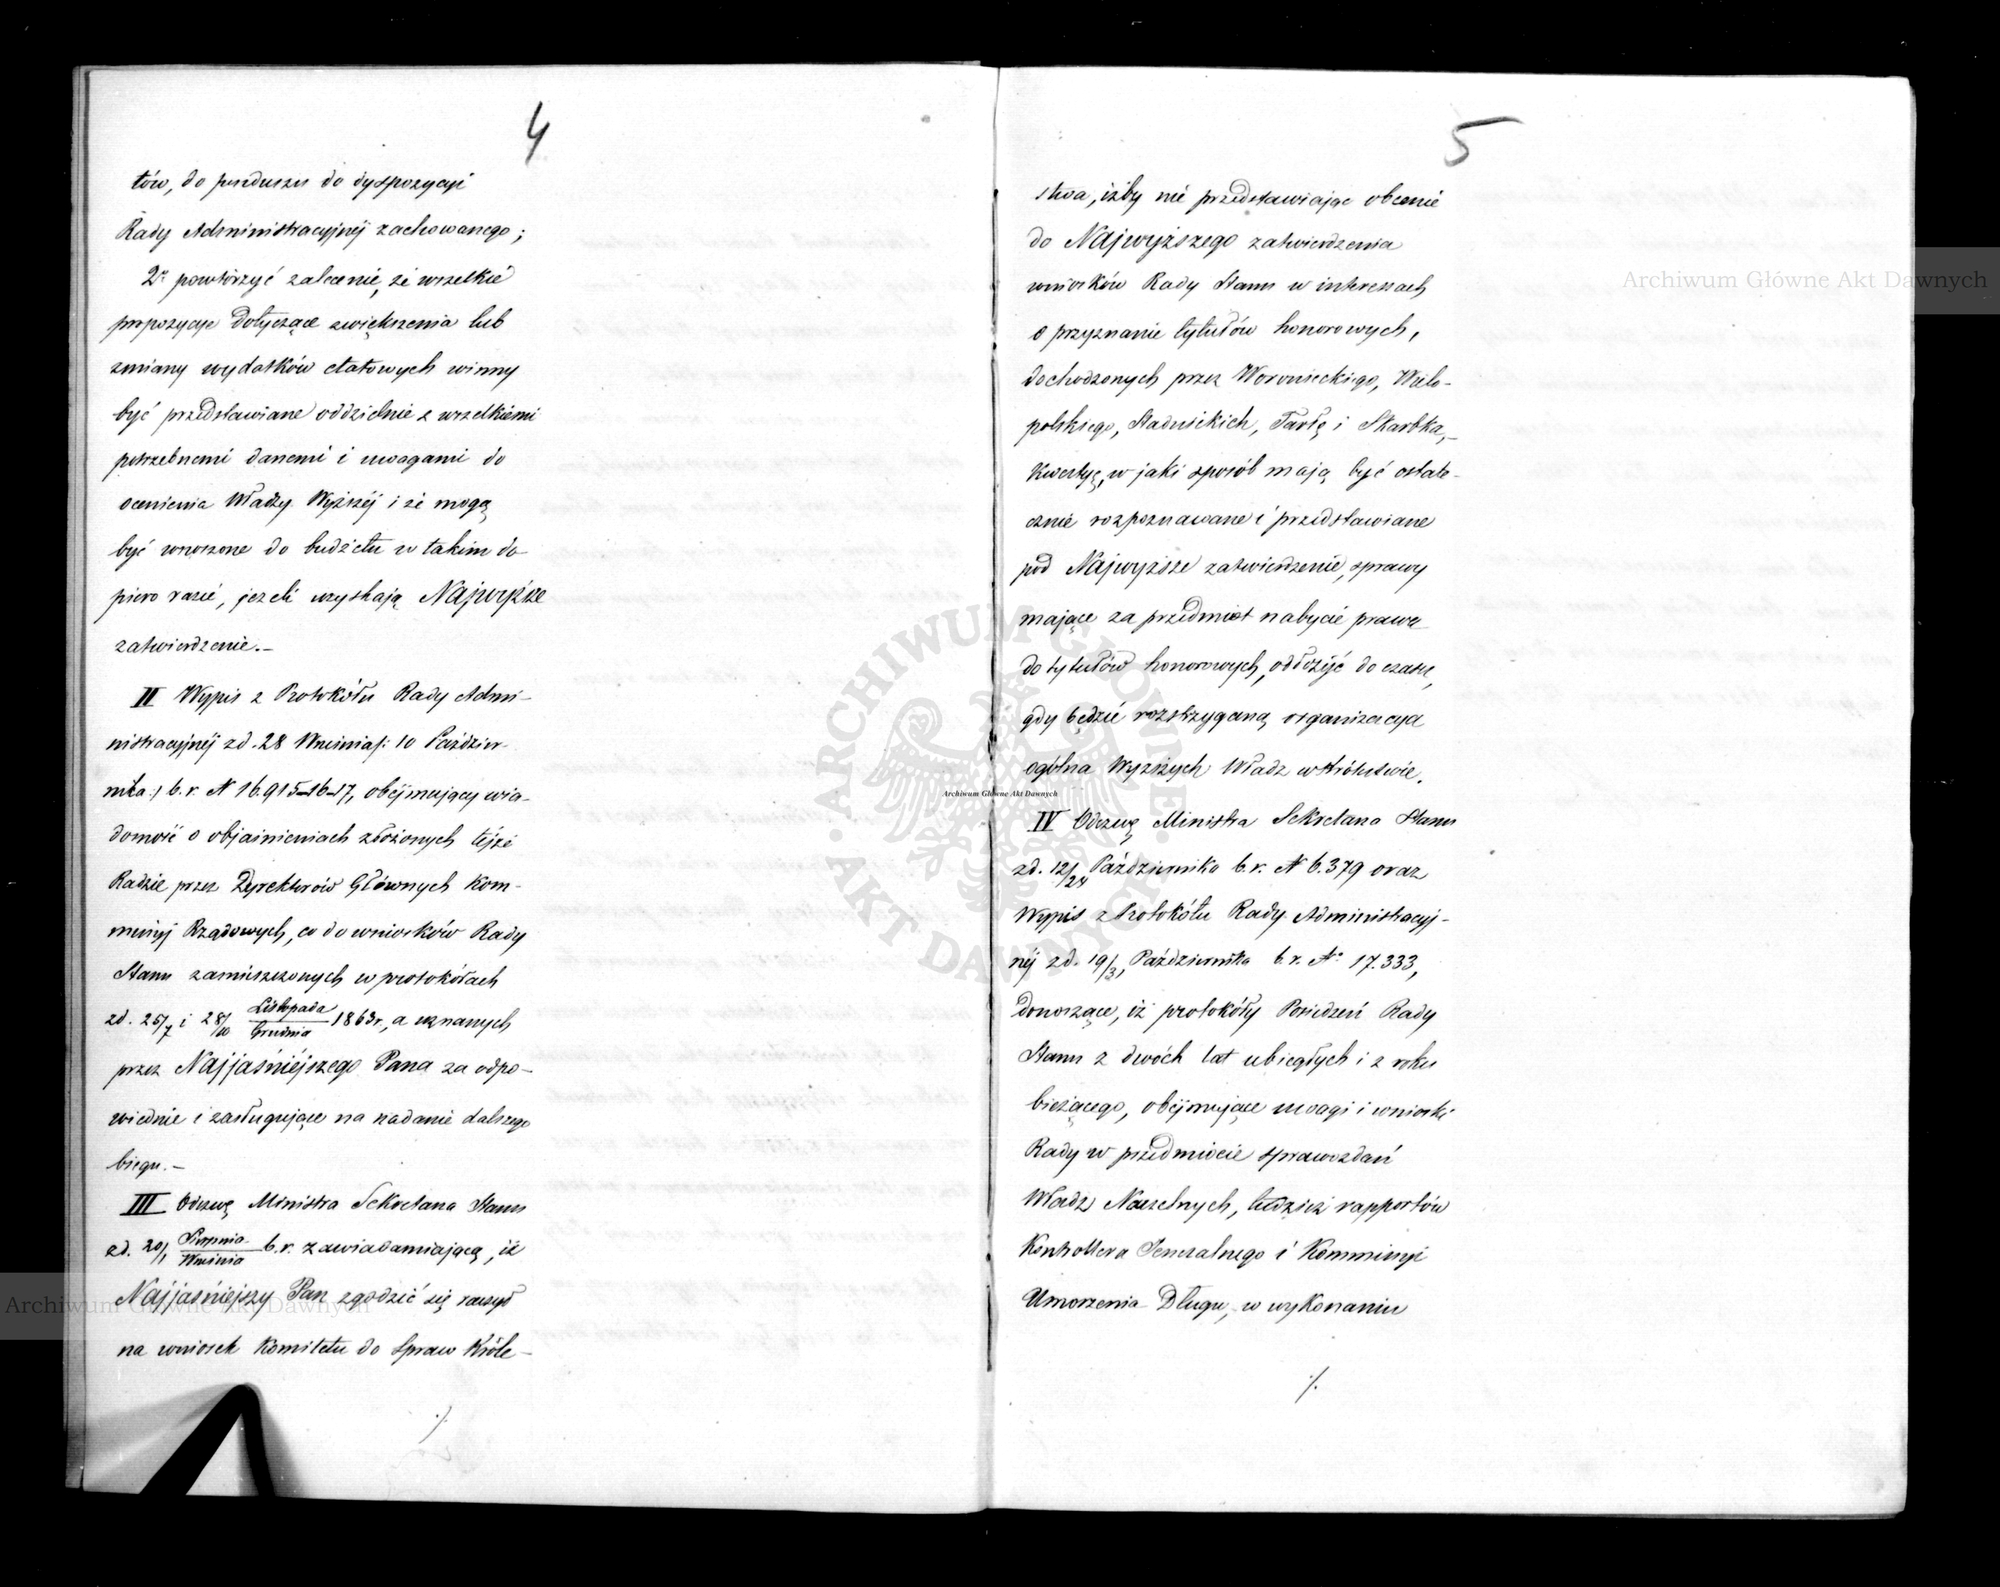 4
tów, do funduszu do dyspozycyi
Rady Administracyjnéj zachowanego;
2° powtórzyć zalecenie, że wszelkie
propozycje dotyczące zwiększenia lub
zmiany wydatków etatowych winny
być przedstawiane oddzielnie z wszelkiemi
potrzebnemi danemi i uwagami do
ocenienia Władzy Wyższéj i że mogą
być wnoszone do budżetu w takim do-
piero razie, jeżeli uzyskają Najwyższe
zatwierdzenie.—
II Wypis z Protokółu Rady Admi-
nistracyjnéj z d. 28 Września /: 10 Paździer-
nika :/ b. r. N 16.915–16–17, obejmujący wia-
domość o objaśnieniach złożonych tejże
Radzie przez Dyrektorów Głównych Kom-
missyj Rządowych, co do wniosków Rady
Stanu zamieszczonych w protokółach
z d. 25/7 i 28/10 Listopada/Grudnia 1863 r., a uznanych
przez Najjaśniéjszego Pana za odpo-
wiednie i zasługujące na nadanie dalszego
biegu.—
III Odezwę Ministra Sekretarza Stanu
z d. 20/1 Sierpnia/Września b. r. zawiadamiającą, iż
Najjaśniejszy Pan zgodzić się raczył
na wniosek Komitetu do Spraw Króle-
./.
5
stwa, iżby nie przedstawiając obecnie
do Najwyższego zatwierdzenia
wniosków Rady Stanu w interessach
o przyznanie tytułów honorowych,
dochodzonych przez Woronieckiego, Wielo-
polskiego, Stadnickich, Tarłę i Skarbka,—
Kwestyę, w jaki sposób mają być ostate-
cznie rozpoznawane i przedstawiane
pod Najwyższe zatwierdzenie, sprawy
mające za przedmiot nabycie prawa
do tytułów honorowych, odłożyć do czasu,
gdy będzie rozstrzyganą organizacya
ogólna Wyższych Władz w Królestwie.
IV Odezwę Ministra Sekretarza Stanu
z d. 12/24 Października b. r. N 6.379 oraz
Wypis z Protokółu Rady Administracyj-
néj z d. 19/31 Października b. r. N° 17.333,
donoszące, iż protokóły Posiedzeń Rady
Stanu z dwóch lat ubiegłych i z roku
bieżącego, obejmujące uwagi i wnioski
Rady w przedmiocie sprawozdań
Władz Naczelnych, tudzież rapportów
Kontrollera Jeneralnego i Kommissyi
Umorzenia Długu, w wykonaniu
./.
Archiwum Główne Akt Dawnych
Archiwum Główne Akt Dawnych
Archiwum Główne Akt Dawnych
ARCHIWUM GŁÓWNE · AKT DAWNYCH ·